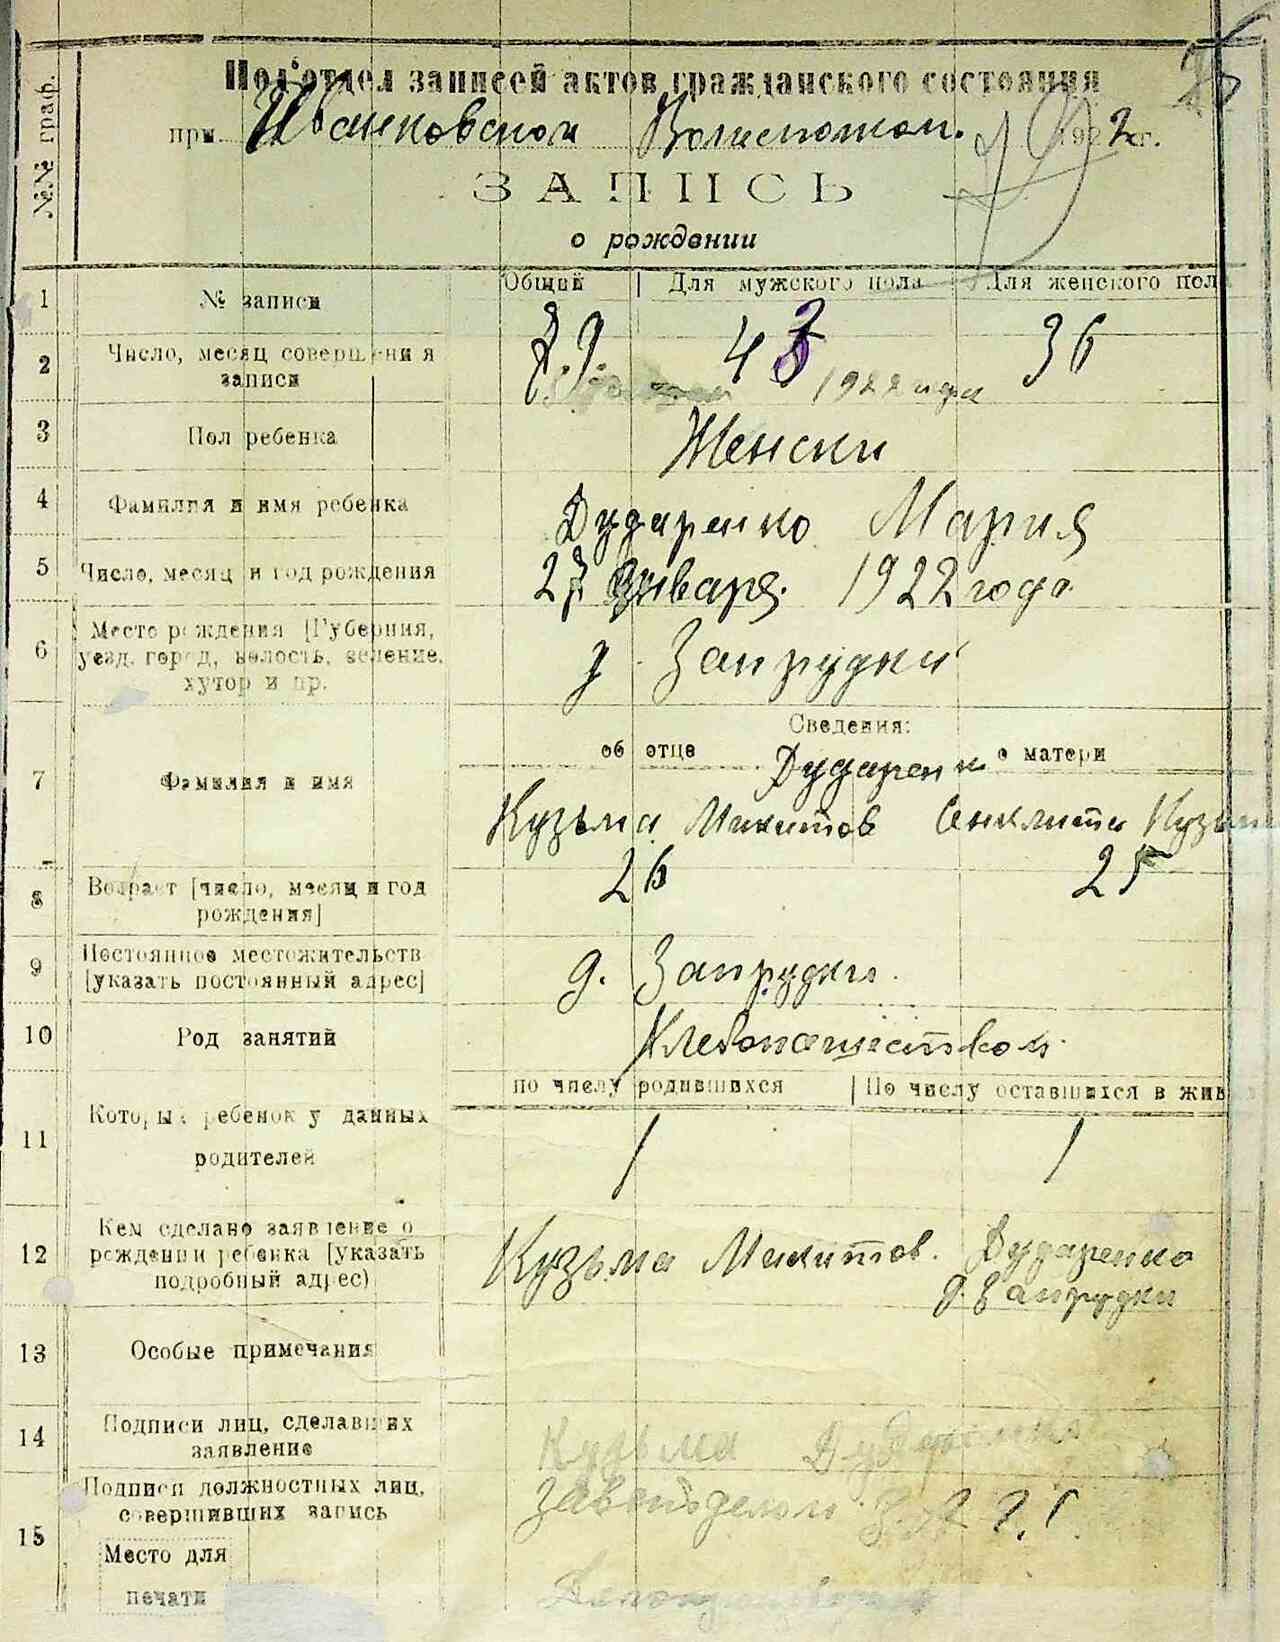 №№ граф.
Под'отдел записей актов гражданского состояния
при Иванковском Волисполком. 1922 г.
ЗАПИСЬ
о рождении
Общий | Для мужского пола Для женского пол
1 № записи
79. 43 36
2 Число, месяц совершения
записи
1922 года
3 Пол ребенка Женски
4 Фамилия и имя ребенка Дударенко Мария
5 Число, месяц и год рождения 27 Января. 1922 года.
6 Место рождения [Губерния,
уезд, город, волость, селение,
хутор и пр. д. Запрудки
Сведения:
об отце Дударенк о матери
7 Фамилия и имя
Кузьма Микитов Сенклита Кузьм
8 Возраст [число, месяц и год
рождения] 26 25
9 Постоянное местожительств
[указать постоянный адрес] д. Запрудки.
10 Род занятий Хлебопашеством.
по числу родившихся | По числу оставшихся в жив
11 Который ребенок у данных
родителей 1 1
12 Кем сделано заявление о
рождении ребенка [указать
подробный адрес) Кузьма Микитов. Дударенко
д. Запрудки
13 Особые примечания
14 Подписи лиц, сделавших
заявление Кузьма Дударенко
15 Подписи должностных лиц,
совершивших запись
Место для
печати